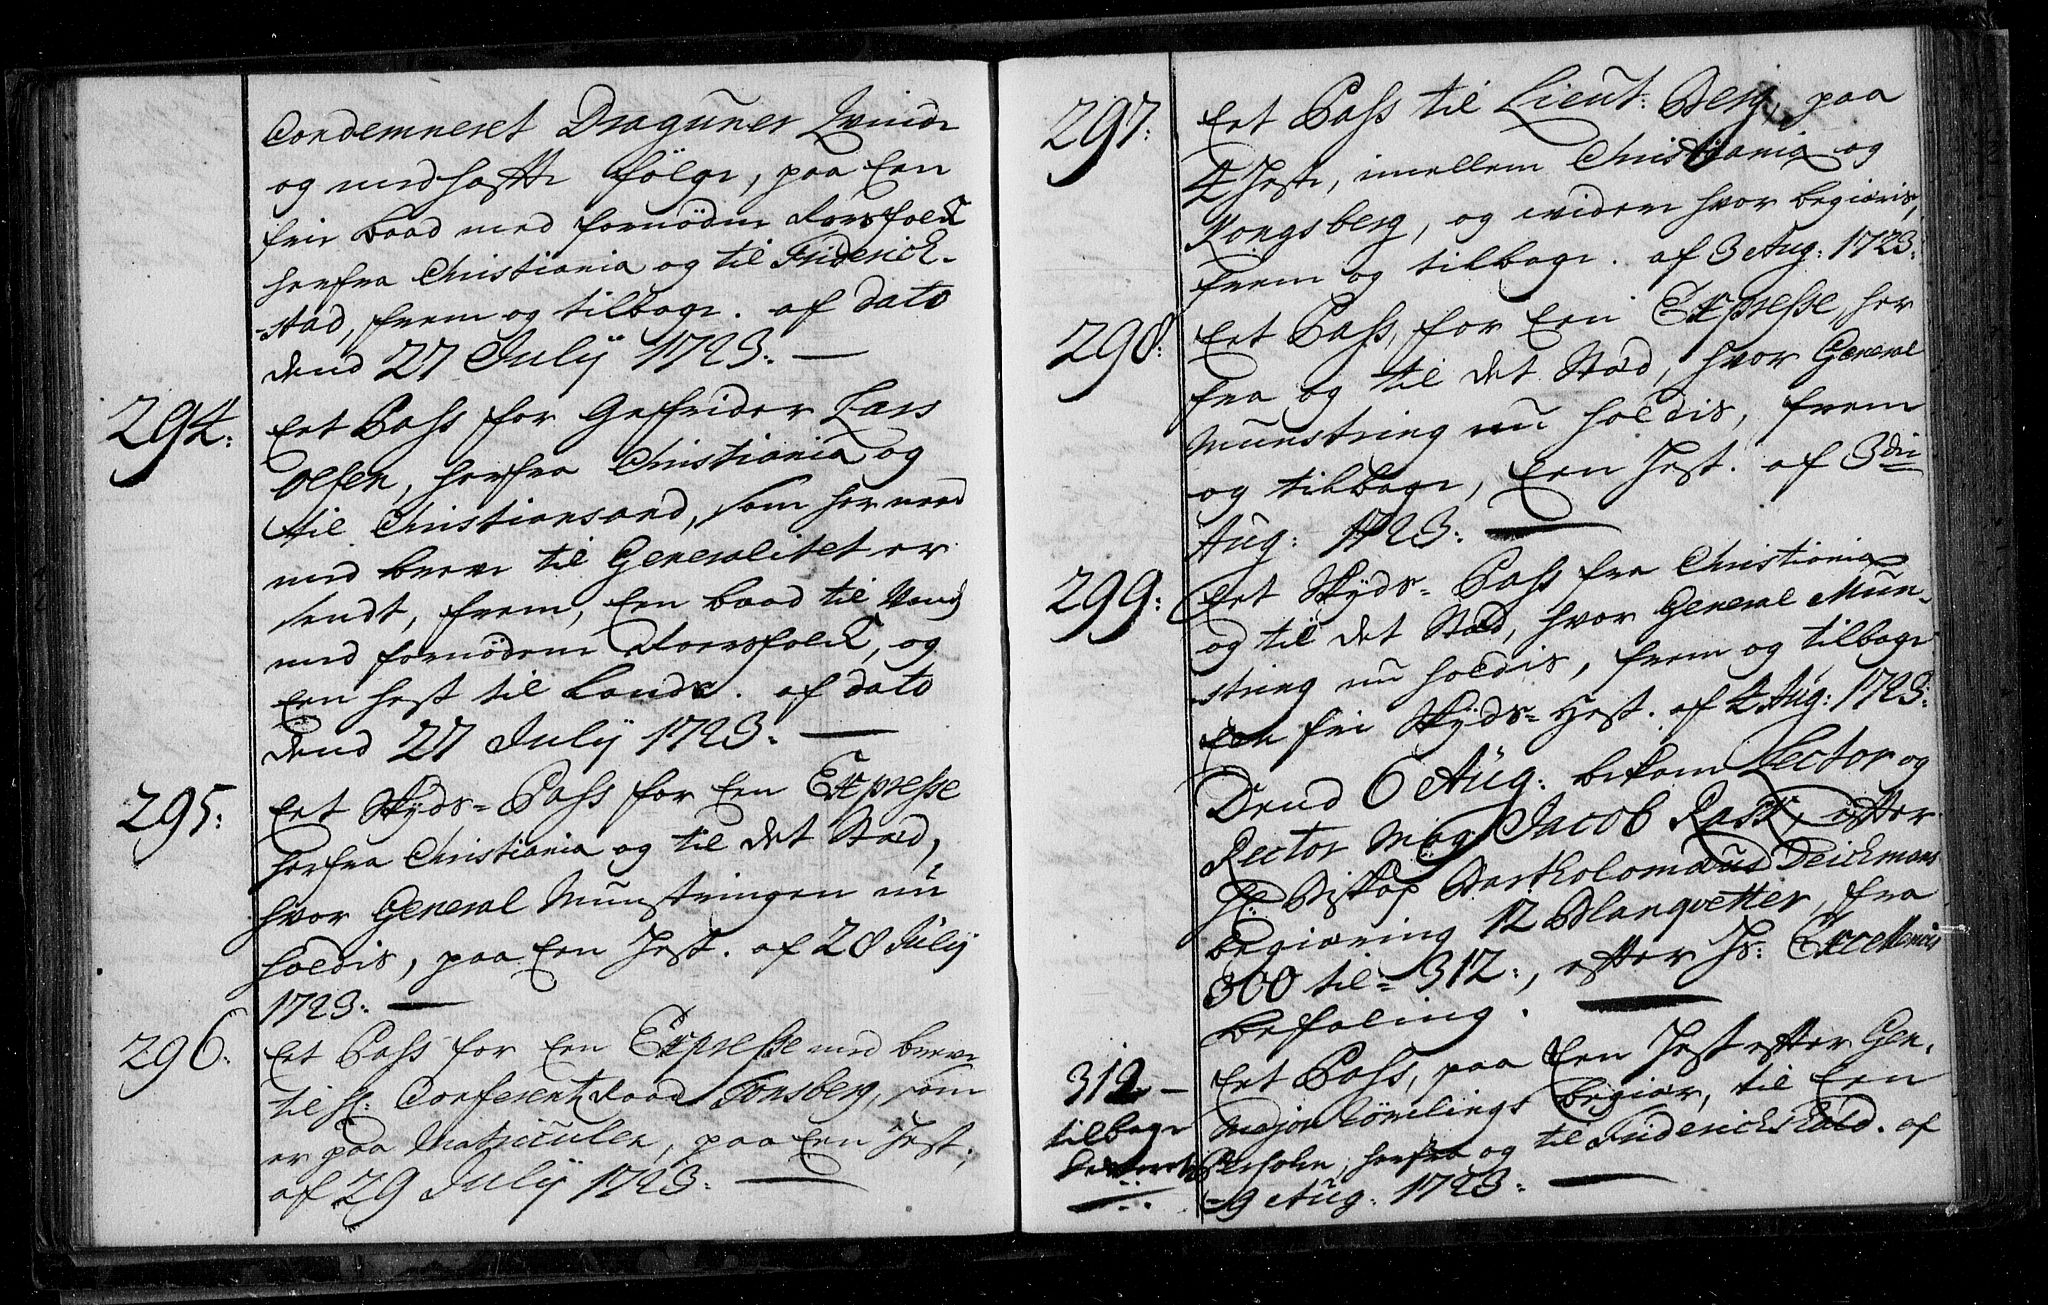 Condemneret Dragunes Qvinde
og medhafte følge, paa Een
frie baad med fornøden Roersfolck
herfra Christiania og til Friderich-
stad, frem og tilbage. af dato
dend 27 Julÿ 1723. —
294: Eet Pass for Gefrider Lars
Olsen, herfra Christiania og
til Christiansand, som her need
med breve til Generalitet er
sendt, frem, Een baad til
med fornødene Roersfolck, og
Een hest til Lands. af dato
Dend 27 Julÿ 1723. —
295: Eet Skyds-Pass for Een Expresse
herfra Christiania og til det Stæd,
hvor General Munstringen nu
holdis, paa Een Hest. af 28 Julÿ
1723. —
296: Eet Pass for Een Expresse med breve
til H: Conferentz Raad Tonsberg, som
er paa Matriculen, paa Een Hest,
af 29 Julÿ 1723. —
297: Eet Pass til Lieut: Berg, paa
4 Heste, imellem Christiania og
Kongsberg, og widere hvor begieris,
frem og tilbage. af 3 Aug: 1723.
298: Eet Pass, for Een Expresse, her
fra og til det Stæd, hvor General
Munstring nu holdis, frem
og tilbage, Een Hest. af 3die
Aug: 1723. —
299: Eet Skyds-Pass fra Christiania
og til det Stæd, hvor General Mun-
string nu holdis, frem og tilbage
Een fri Skyds-Hest. af 4 Aug: 1723:
Dend 6 Aug: bekom Lector og
Rector Mag Jacob Rasch, efter
H: Biskop Bartholomæus Deichmans
begiæring 12 Blanqvetter, fra
300 til 312:, efter Hs: Excellences
befaling. —
312 — Eet Pass, paa Een Hest efter Gen.
tilbage Major begiær, til Een
herfra og til Friderichshald. af
9 Aug: 1723. —